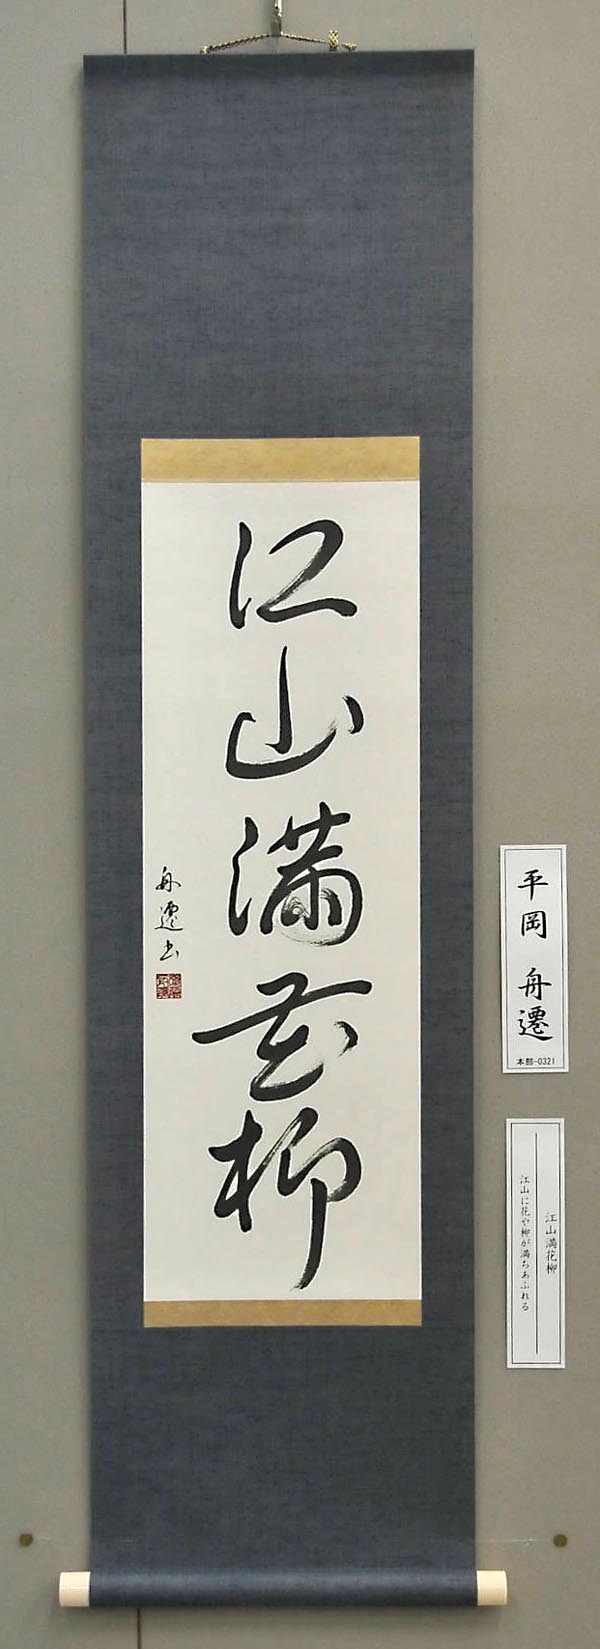 江山満花柳
舟遷書
平岡 舟遷
本部-0321
江山満花柳
江山に花や柳が満ちあふれる